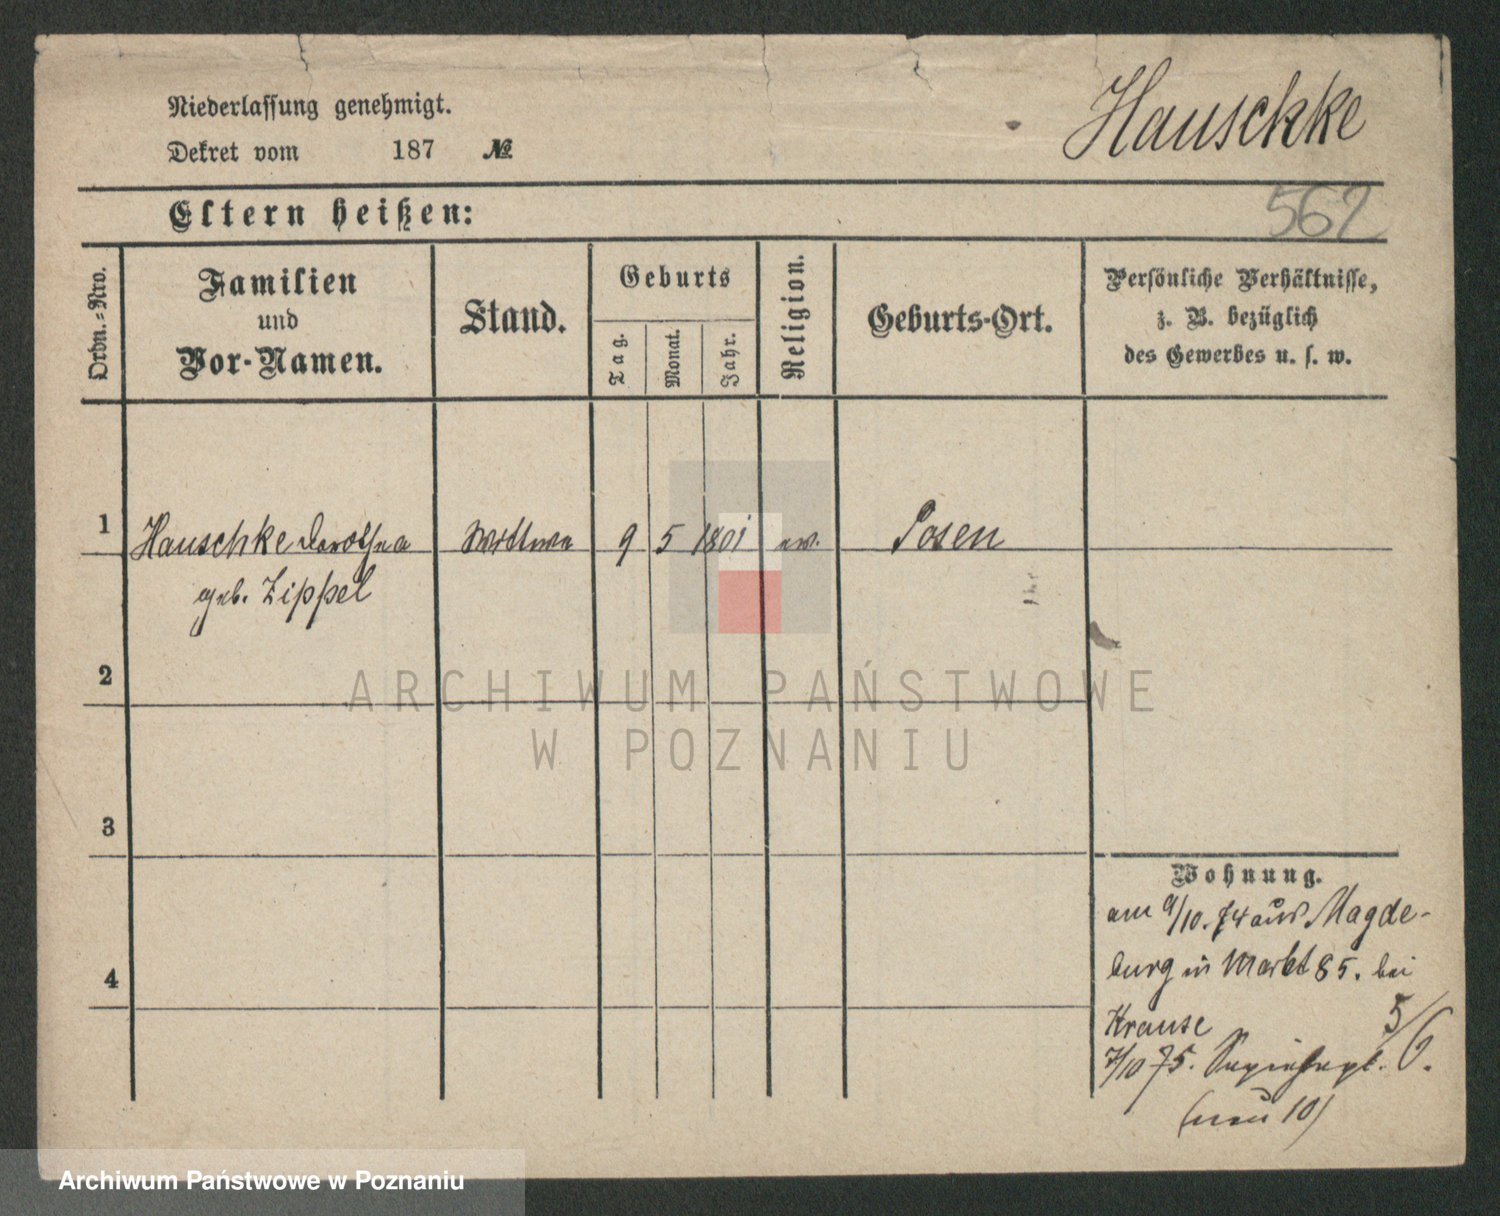 Niederlassung genehmigt.
Dekret vom 187 №
Hauschke
562
Eltern heißen:
Ordn.-Nro.
Familien
und
Vor-Namen.
Stand.
Geburts
Tag.
Monat.
Jahr.
Religion.
Geburts-Ort.
Persönliche Verhältnisse,
z. B. bezüglich
des Gewerbes u. s. w.
1 Hauschke Dorothea Wittwe 9 5 1801 ev. Posen
geb. Zippel
2
3
4
ARCHIWUM PAŃSTWOWE
W POZNANIU
Wohnung.
am 9/10. 74 aus Magde-
burg in Markt 85. bei
Krause
7/10 75. Sapiehapl. 5/6.
(neu 10)
Archiwum Państwowe w Poznaniu